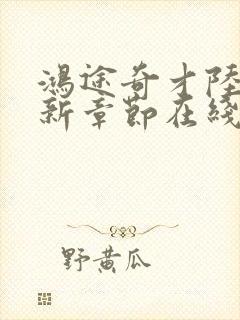 鴻途奇才陸
新章節在綫
野黄瓜